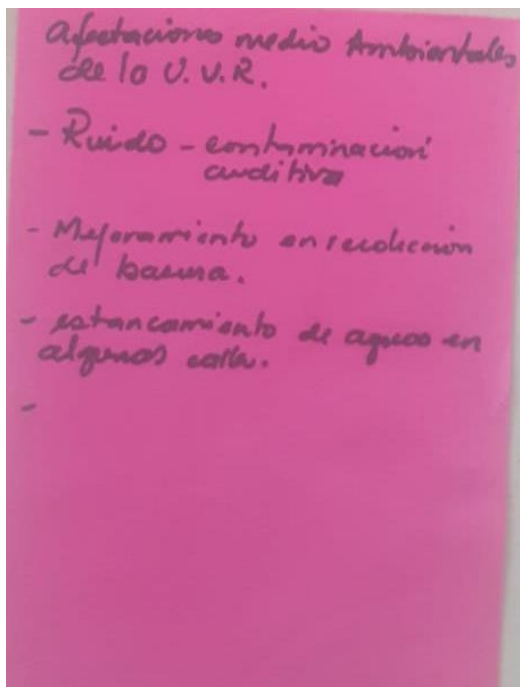 Afectaciones medio Ambientales
de lo U.V.R.
- Ruido - contaminación
auditiva
- Mejoramiento en recolección
de basura.
- estancamiento de aguas en
algunas calle.
-